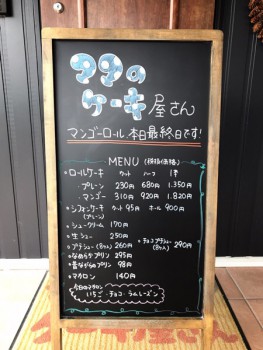 ママの
ケーキ屋さん
マンゴーロール、本日最終日です!
MENU (税抜価格)
ロールケーキ カット ハーフ 1本
・プレーン 230円 680円 1.350円
・マンゴー 310円 920円 1.820円
シフォンケーキ カット 95円 ホール 900円
(プレーン)
シュークリーム 170円
生シュー 250円
プチシュー(8ヶ入) 260円 チョコプチシュー(8ヶ入) 290円
なめらかプリン 295円
昔ながらのプリン 98円
マカロン 140円
今日のマカロン
いちご・チョコ・ラムレーズン